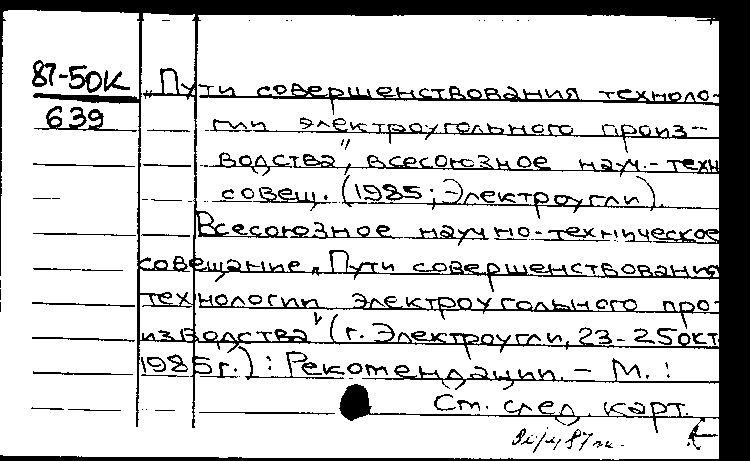 87-50К
639
„Пути совершенствования техноло-
гии электроугольного произ-
водства", всесоюзное науч.-техн
совещ. (1985; Электроугли).
Всесоюзное научно-техническое
совещание „Пути совершенствования
технологии электроугольного про-
изводства" (г. Электроугли, 23-25 окт
1985г.): Рекомендации. – М.:
Ст. след. карт.